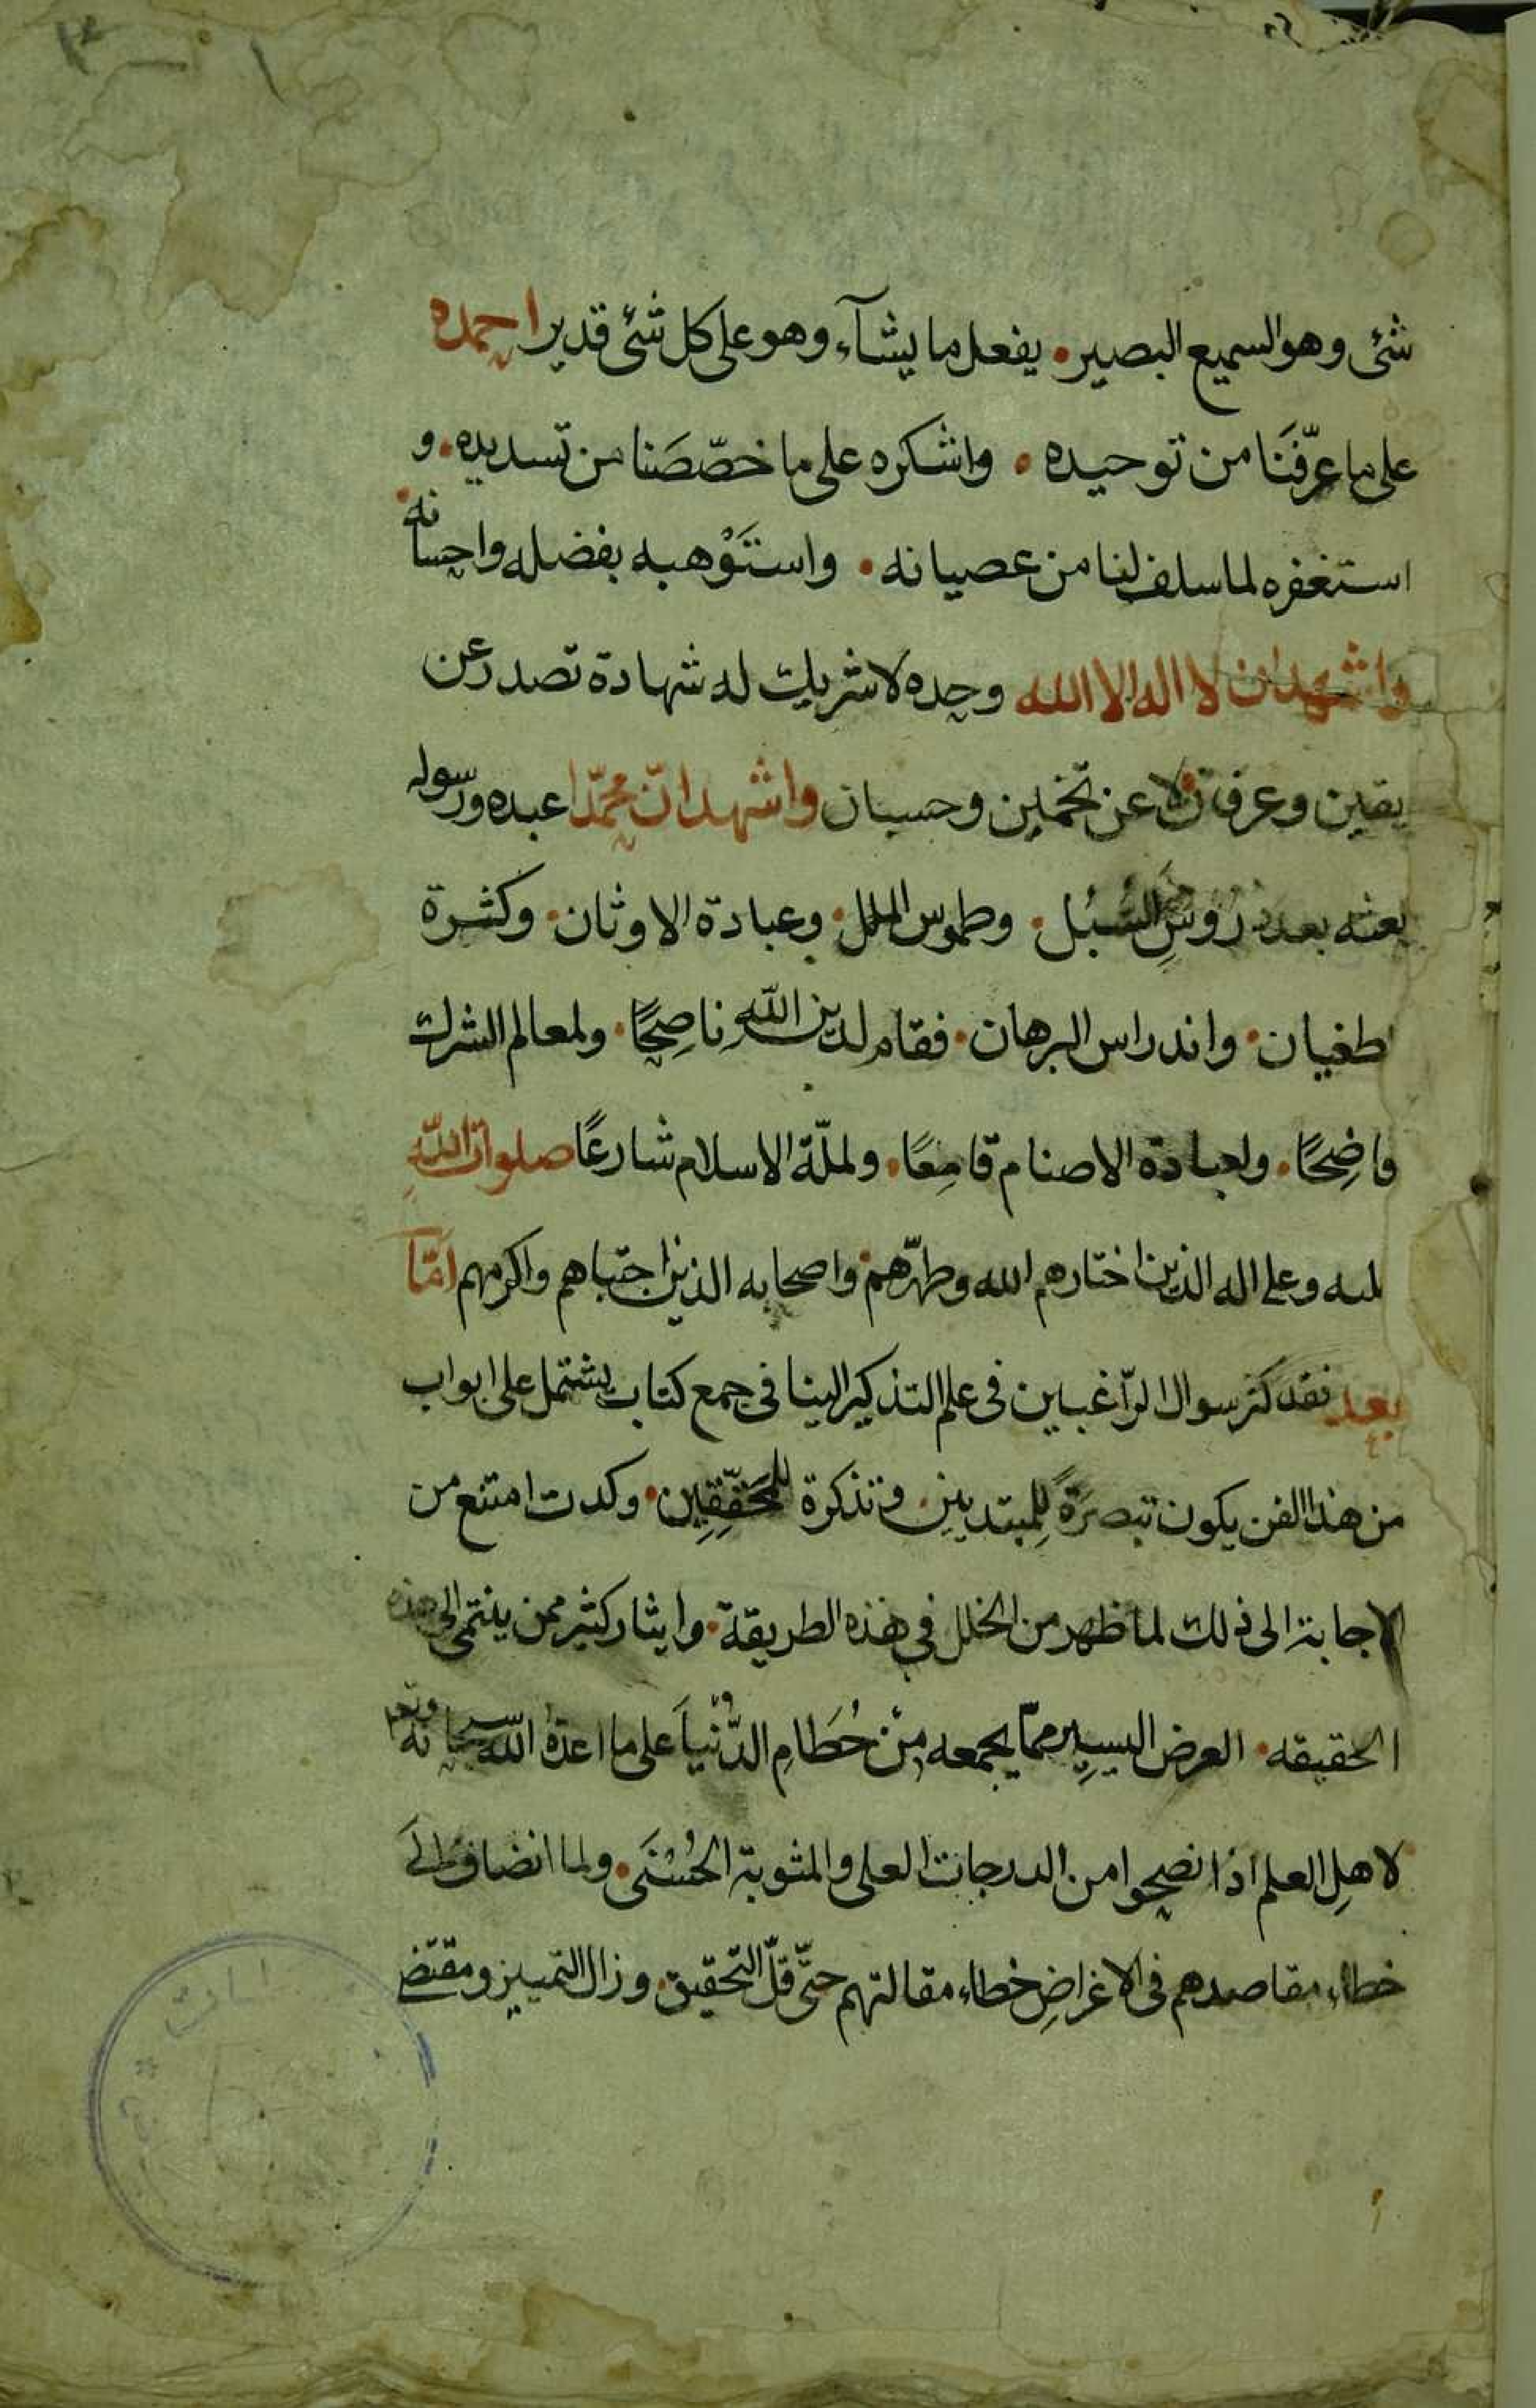 شئ وهو السميع البصير. يفعل ما يشآء وهو على كل شئ قدير احمده
على ما عرّفَنَا من توحيده. واشكره على ما خصّصَنا من تسديده. و
استغفره لما سلف لنا من عصيانه. واستَوْهبه بفضله واحسانه.
واشهد ان لا اله الا الله وحده لا شريك له شهادة تصدر عن
يقين وعرفان لا عن تخمين وحسبان واشهد انّ محمّدا عبده ورسوله
بعثه بعد دروسِ السُبُل. وطموس الملل. وعبادة الاوثان. وكثرة
طغيان. واندراس البرهان. فقام لدين اللّٰهِ ناصِحًا. ولمعالم الشرك
فاضِحًا. ولعبادة الاصنام قامِعًا. ولملّة الاسلام شارعًا صلوات اللّٰهِ
ليه وعلى اله الذين اختارهم الله وطهّرهم. واصحابه الذين اجتباهم واكرمهم امّا
بعد فقد كثر سوال الرّاغبين فى علم التذكير الينا فى جمع كتاب يشتمل على ابواب
من هذا الفن يكون تبصرَةً لِلمبتديين. وتذكرة للمحَقِّقِين. وكدت امتنع من
الاجابة الى ذلك لما ظهر من الخلل فى هذه الطريقة. وايثار كثير ممن ينتمى الى هذه
الحقيقه. العرض اليسيرِ ممّا يجمعه مِنْ حُطَامِ الدُّنْيَا على ما اعدّه اللّٰه سبحانه وتعٰ
لاهلِ العلم اذا نصحوا من الدرجات العلى والمثوبة الحُسْنَى. ولما انضاف اِلَى
خطاء مقاصدهم فى الاغراضِ خطاء مقالتهم حتّى قلّ التحقيق. وزال التمييز ومقتضى